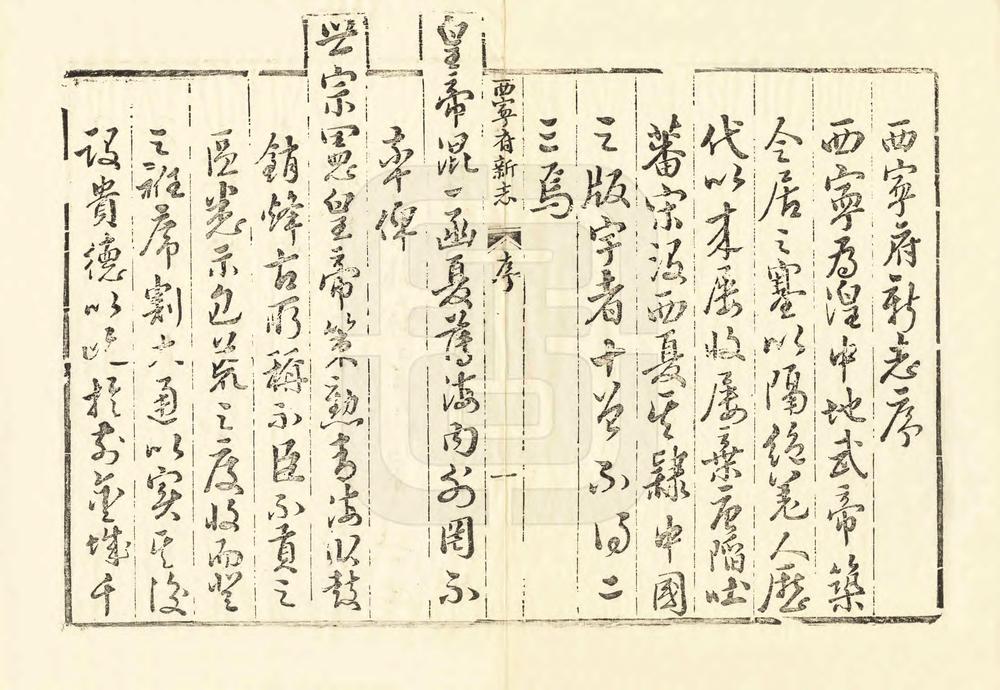 西寧府新志序
西寧為湟中地武帝築
令居之塞以隔絕羌人歷
代以來屢收屢棄唐陷吐
蕃宋沒西夏其隸中國
之版宇者十曾不得二
三焉
西寧府新志 序 一
皇帝混一函夏薄海内外罔不
率俾
世宗憲皇帝策勲青海臥鼓
銷烽古所稱不臣不貢之
區悉示包荒之度收而登
之衽席割大通以實其後
設貴德以於前金城千